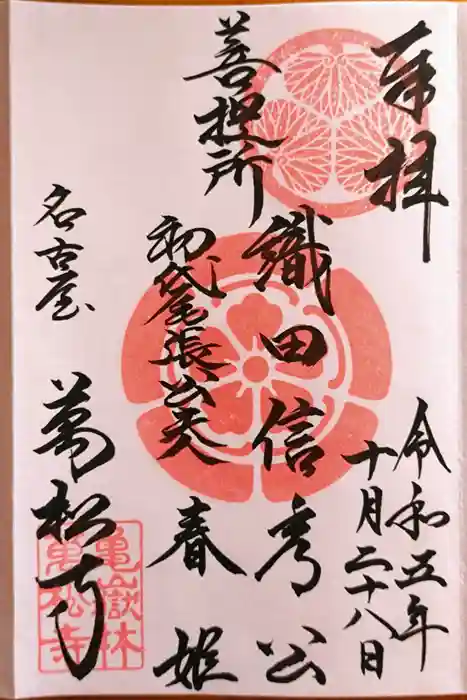 奉拝
令和五年
十月二十八日
菩提所
織田信秀公
初代尾張公夫人
春姫
名古屋
萬松寺
亀嶽林
萬松寺